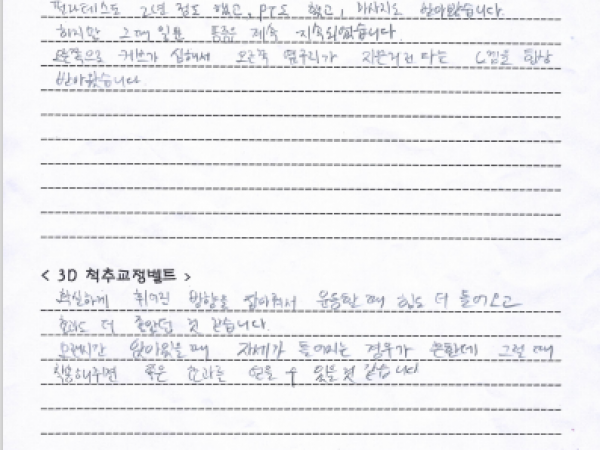 필라테스도 2년 정도 했고, PT도 했고, 마사지도 받아봤습니다.
하지만 그때일뿐 통증은 계속 지속되었습니다.
오른쪽으로 커브가 심해서 오른쪽 옆구리가 다는 느낌을 항상
받아왔습니다.
< 3D 척추교정벨트 >
확실하게 휘어진 방향을 잡아줘서 운동할 때 힘도 더 들어오고
효과도 더 좋았던 것 같습니다.
오랜시간 앉아있을때 자세가 틀어지는 경우가 흔한데 그럴 때
착용해주면 좋은 효과를 얻을 수 있을것 같습니다